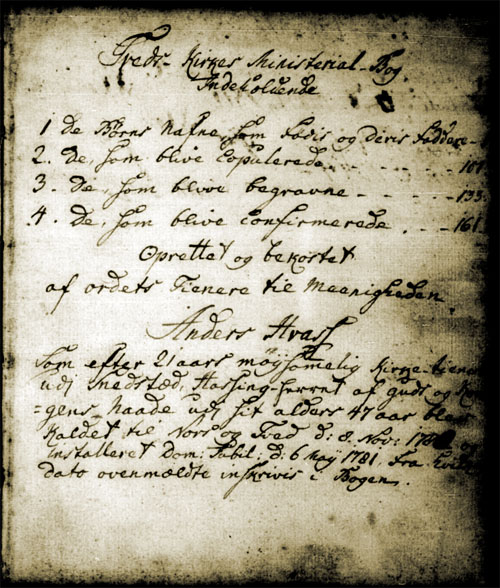 Treds- Kirkes Ministerial-Bog
Indeholdende
1 De Børns Nafne, som Fødis og Deris Faddere -
2. De, som blive Copulerede - - - - - - 107
3. De, som blive begravne - - - - - 133
4. De, som blive confirmerede - - - 161
Oprettet og bekostet
af ordets Tienere til Meenigheden
Anders Hvass
som efter 21 aars møysomelig Kirke-tiene
udj Snedsted, Hassing-herret af guds og
=gens Naade udj sit alders 47 aar blev
Kaldet til Nors og Tved d: 8. Nov: og
Installeret Dom: Jubil: d: 6 Maÿ 1781. Fra
dato ovenmældte inskrivis i Bogen.